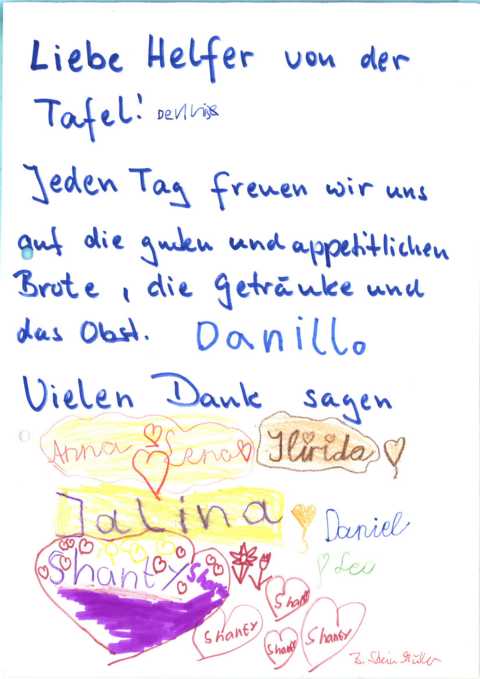 Liebe Helfer von der
Tafel! Dennis
Jeden Tag freuen wir uns
auf die guten und appetitlichen
Brote, die Getränke und
das Obst. Danillo
Vielen Dank sagen
Anna Lena Ilirida
Jalina Daniel
Shanty Shan
Shanty Shanty Shanty Shanty